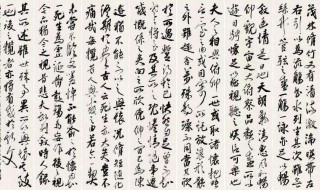 茂林修竹又有清流激湍映帶左
右引以為流觴曲水列坐其次雖無
絲竹管弦之盛一觴一詠亦足以暢
敘幽情是日也天朗氣清惠風和暢
仰觀宇宙之大俯察品類之盛所以
遊目騁懷足以極視聽之娛信可樂也
夫人之相與俯仰一世或取諸懷抱
悟言一室之內或因寄所託放浪形骸
之外雖趣舍萬殊靜躁不同當其欣
於所遇暫得於己快然自足不知老之
將至及其所之既倦情隨事遷感
慨係之矣向之所欣俛仰之間已為陳
迹猶不能不以之興懷況修短隨化
終期於盡古人云死生亦大矣豈不
痛哉每攬昔人興感之由若合一契
未嘗不臨文嗟悼不能喻之於懷固知
一死生為虛誕齊彭殤為妄作後之視
今亦猶今之視昔悲夫故列敘時人錄
其所述雖世殊事異所以興懷其致一
也後之攬者亦將有感於斯文